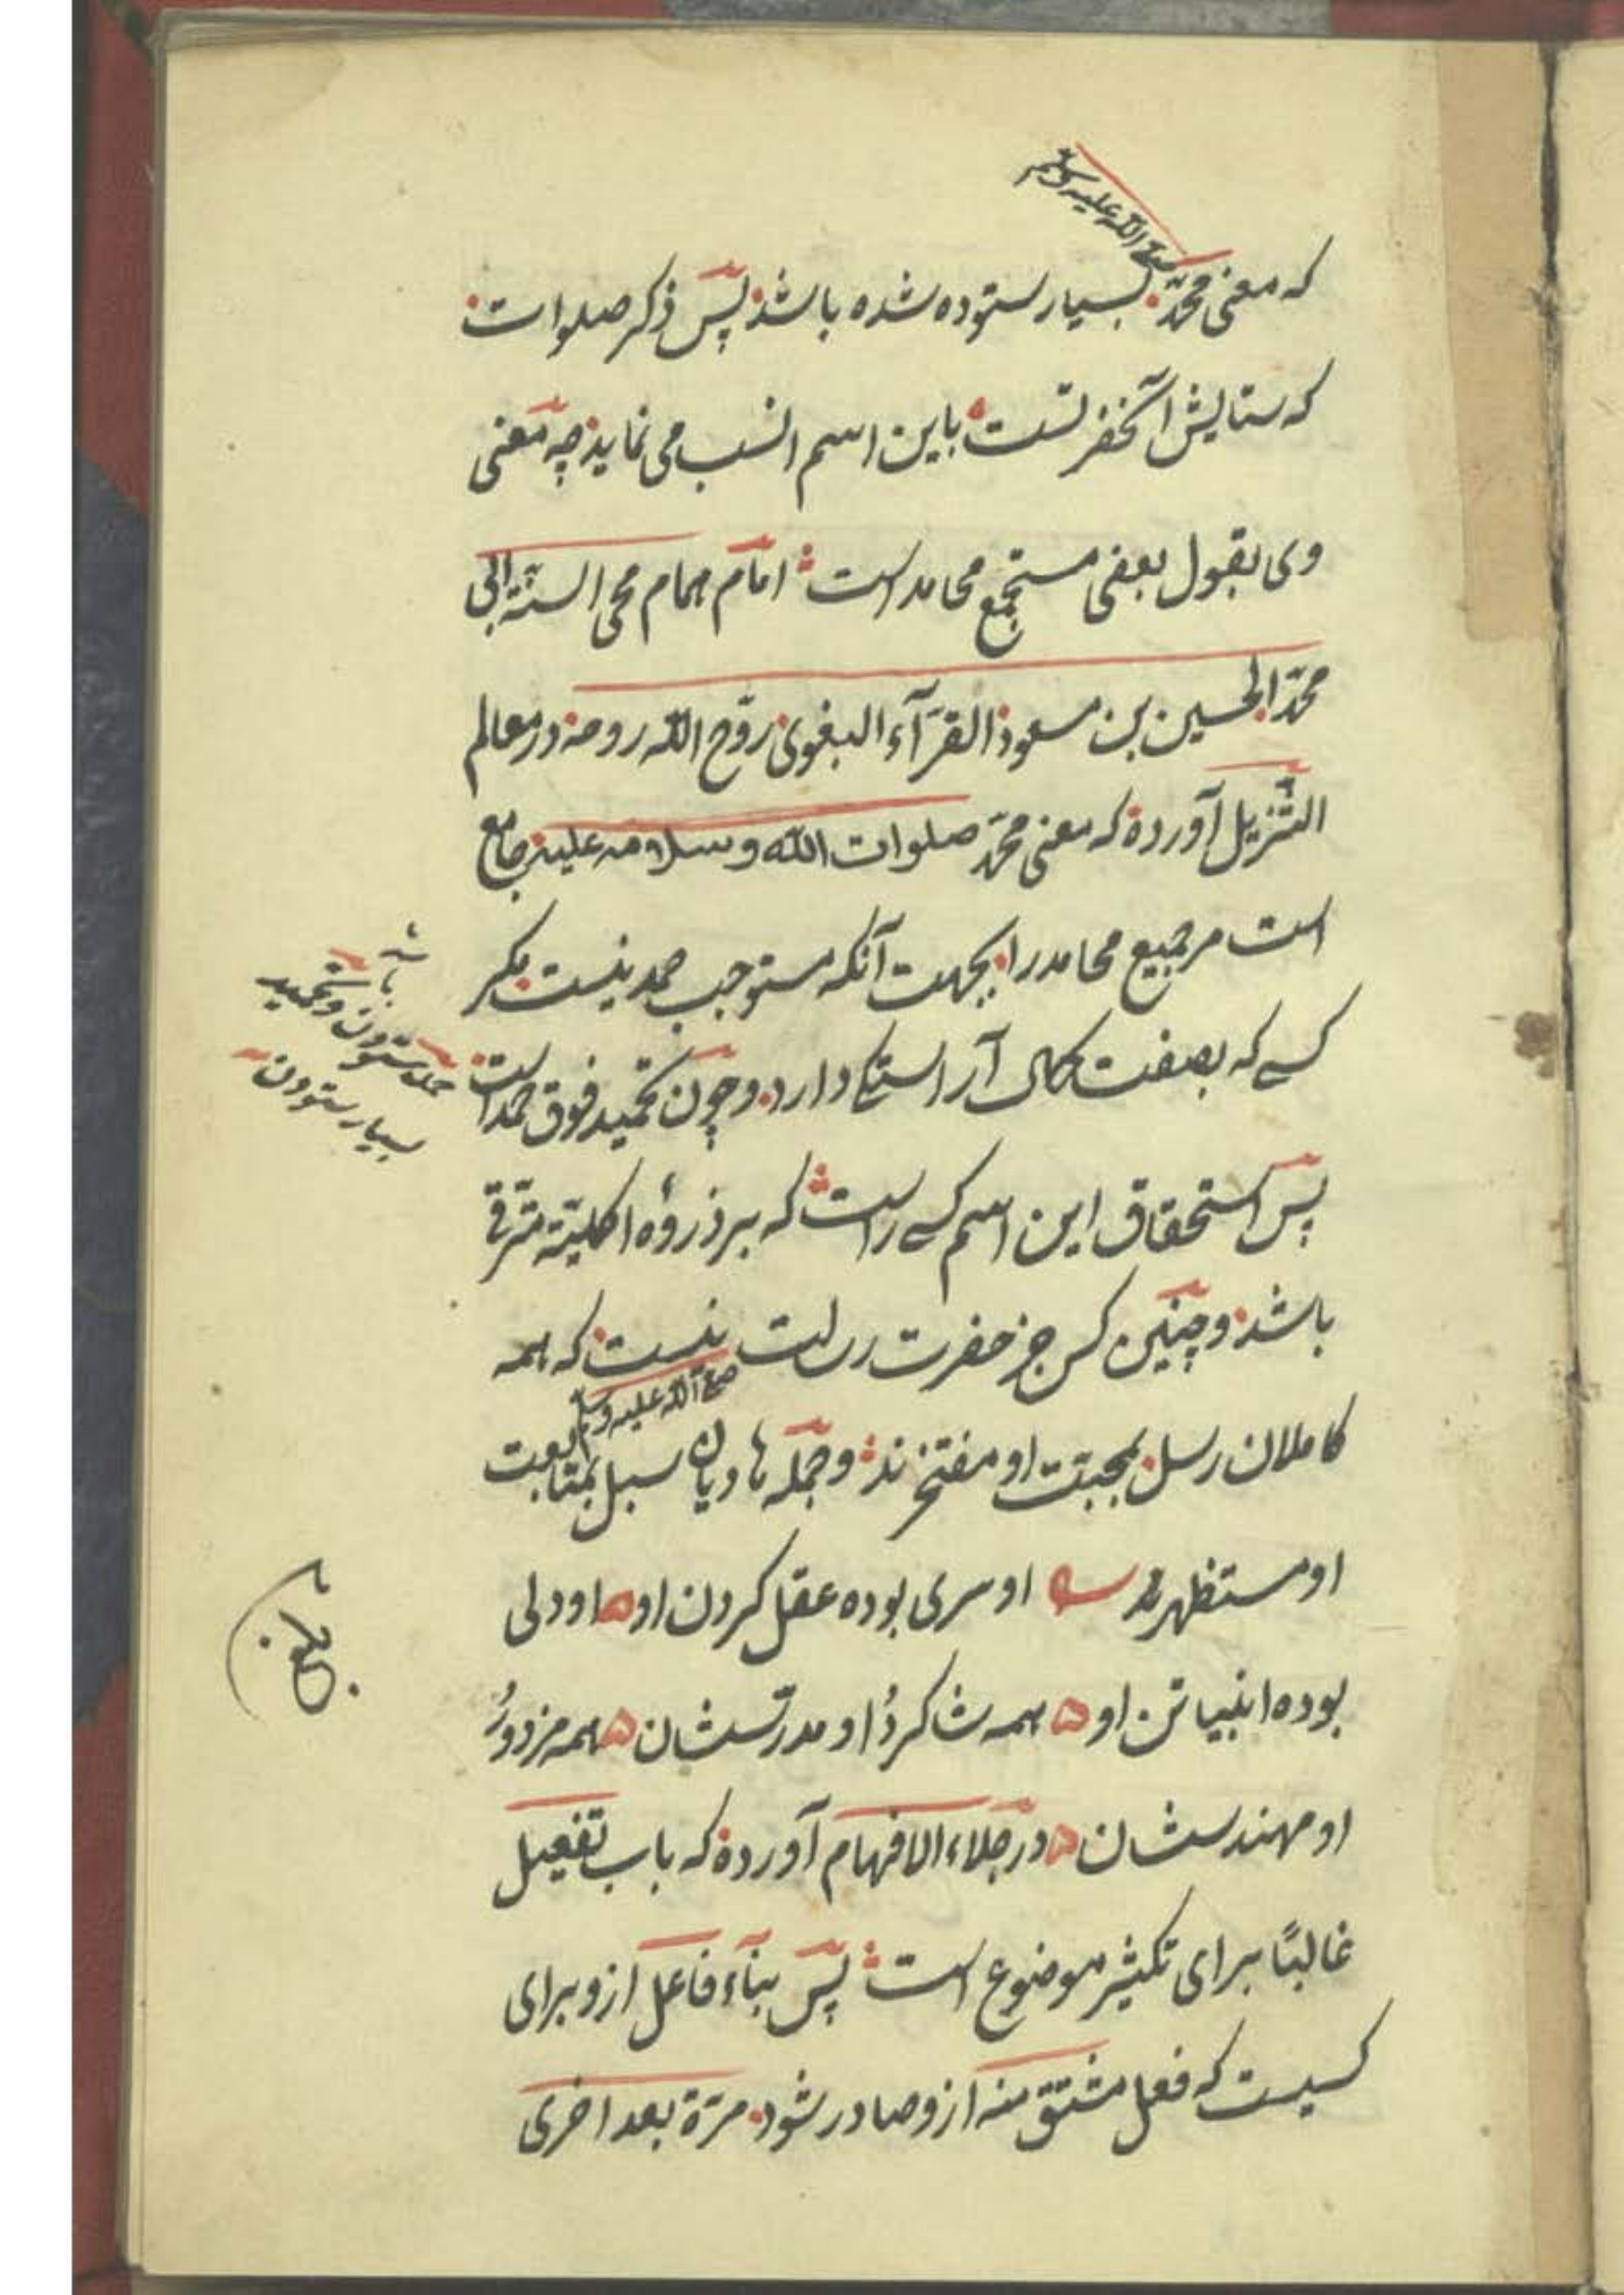 صلی الله علیه وسلم
که معنی محمد بسیار ستوده شده باشد پس ذکر صلوات
که ستایش آنحضرتست باین اسم انسب می نماید چه معنی
وی بقول بعضی مستجمع محامد است امام همام محی السنّة ابی
محمّد الحسین بن مسعود القرّآء البغوی روّح الله روحه در معالم
التّنزیل آورده که معنی محمّد صلوات الله وسلامه علیه جامع
است مر جمیع محامد را بجهت آنکه مستوجب حمد نیست مگر
کسے که بصفت کمال آراستگی دارد وچون تحمید فوق حمد است
حمد ستودن وتحمید
بسیار ستودن
پس استحقاق این اسم کسے راست که بر ذروهٔ اکملیّة مترقی
باشد وچنین کس جز حضرت رسالت نیست که همه
صلی الله علیه وسلم
کاملان رسل بمحبّت او مفتخرند وجمله هادیان سبل بمتابعت
او مستظهرند او سری بوده عقل گردن او ه او دلی
بوده انبیا تن او ه همه شاگردُ او مدرّسشان ه همه مزدورُ
او مهندسشان ه در جلاء الافهام آورده که باب تفعیل
غالبًا برای تکثیر موضوع است پس بنآء فاعل ازو برای
کسیست که فعل مشتق منه ازو صادر شود مرّة بعد اخری